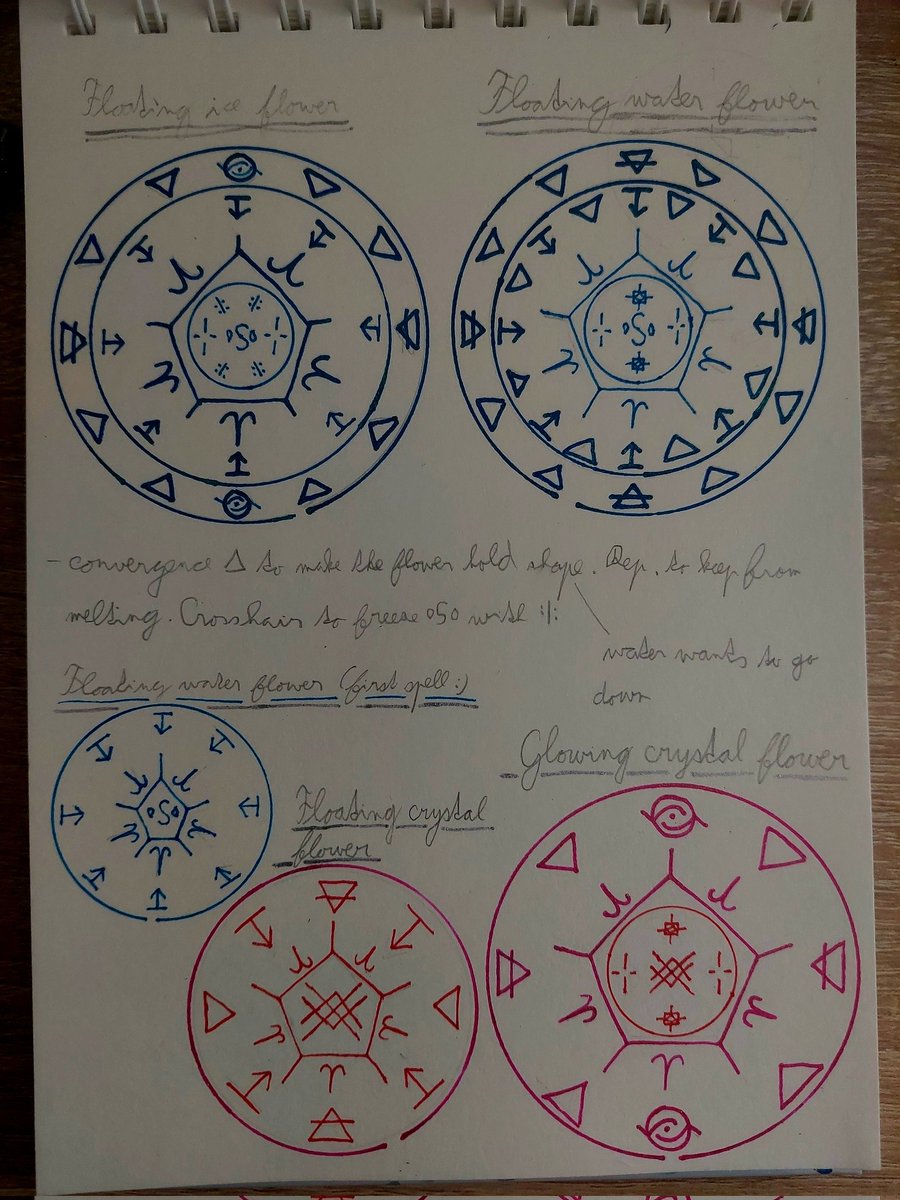 Floating ice flower
Floating water flower
- convergence △ to make the flower hold shape. Rep. to keep from
melting. Crosshair to freeze oSo with :|:
water wants to go
down
Floating water flower (first spell :)
Glowing crystal flower
Floating crystal
flower